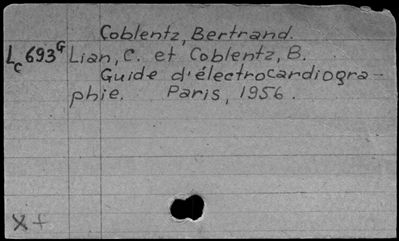 Coblentz, Bertrand.
Lc 693G Lian, C. et Coblentz, B.
Guide d'électrocardiogra-
phie. Paris, 1956.
X f